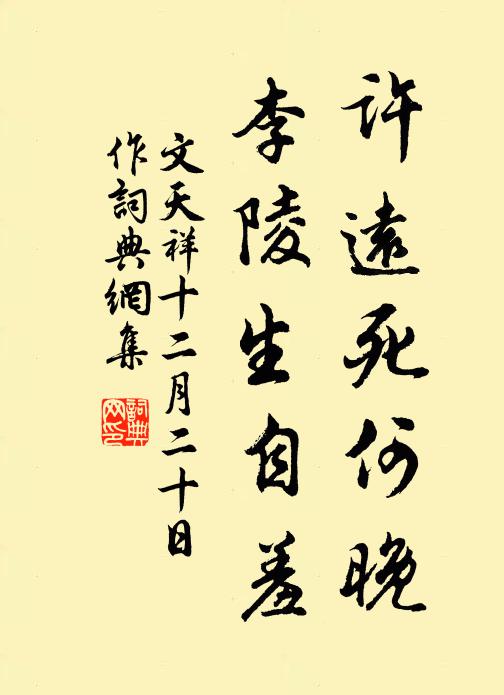 許遠死何晚
李陵生自羞
文天祥十二月二十日
作詞典網集
詞典
网印